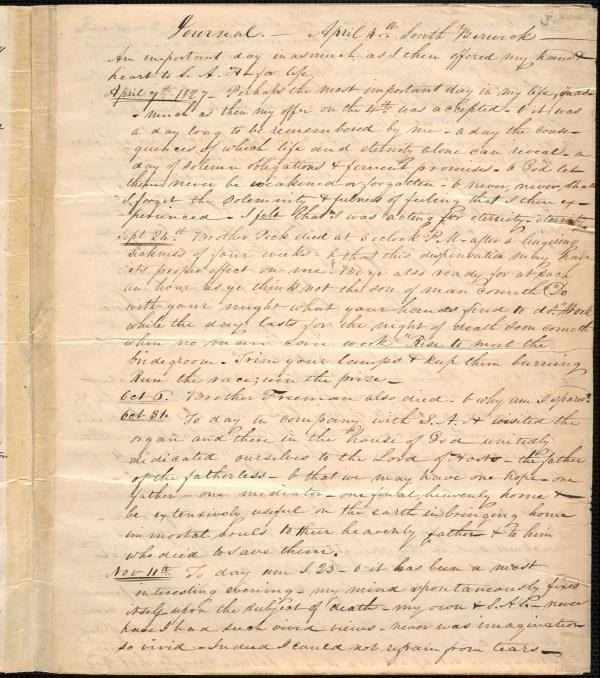 Journal. — April 4.th South Berwick —
An important day inasmuch as I then offered my hand &
heart to S. A. H for life.
April 7th 1827 — Perhaps the most important day in my life, inas-
- much as then my offer on the 4th was accepted — O it was
a day long to be remembered by me — a day the conse-
quences of which life and eternity alone can reveal — a
day of solemn obligations & fervent promises — O God let
them never be weakened or forgotten — O never, never, shall
I forget the solemnity & fulness of feeling that I then ex-
perienced — I felt that I was acting for eternity — eternity
Sept 24.th Brother Peck died at 3 oclock P.M — after a lingering
sickness of four weeks O that this dispensation may have
its proper effect on me — Be ye also ready for at such
an hour as ye think not the son of man cometh Do
with your might what your hands find to do. Work
while the day lasts for the night of death soon cometh
when no man can work" "Rise to meet the
bridegroom — Trim your lamps & keep them burning
Run the race, win the prize —
Oct 6. Brother Freeman also died — O why am I spared?
Oct 31. To day in company with S. A. H visited the
organ and there in the house of God unitedly
dedicated ourselves to the Lord of Hosts — the father
of the fatherless — O that we may have one hope — one
father — one mediator — one final, heavenly home &
be extensively useful on the earth in bringing home
immortal souls to their heavenly father & to him
who died to save them.
Nov 11th To day am I 23 — O it has been a most
interesting evening — my mind spontaneously fixes
itself upon the subject of death — my own & S.A.H. — never
have I had such vivid views — never was imagination
so vivid — Indeed I could not refrain from tears —